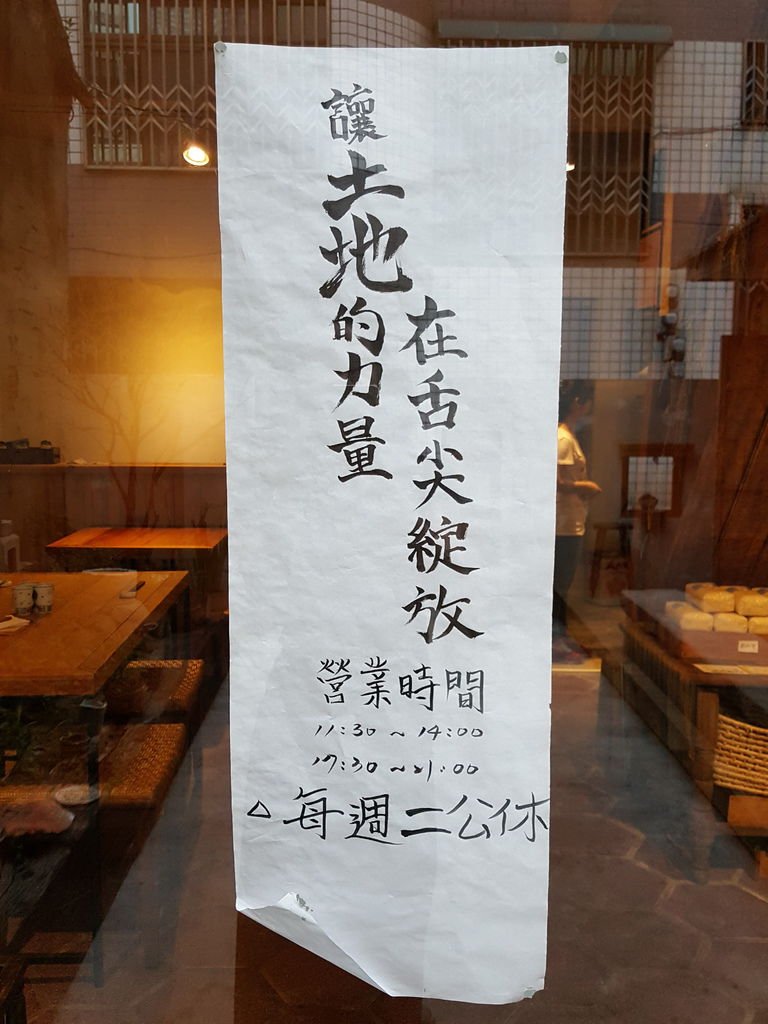 讓土地的力量
在舌尖綻放
營業時間
11:30 ~ 14:00
17:30 ~ 21:00
△ 每週二公休